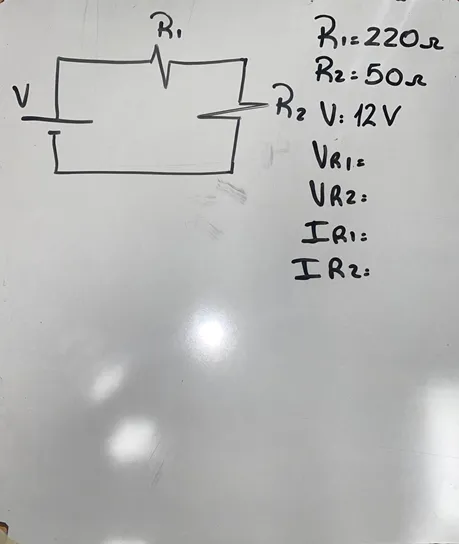 R1
V
R2
R1=220Ω
R2=50Ω
V: 12V
VR1=
VR2=
IR1=
IR2=